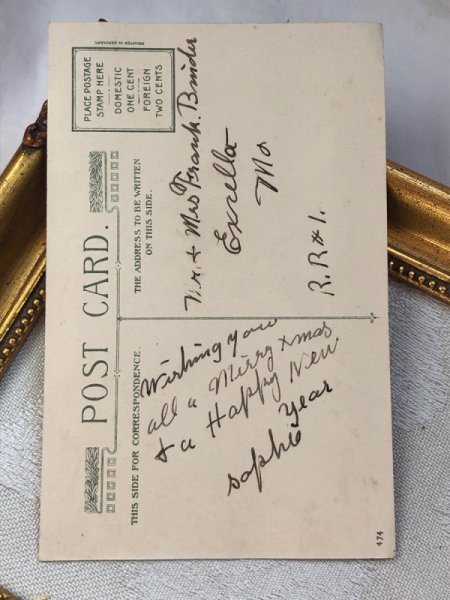 POST CARD.
THIS SIDE FOR CORRESPONDENCE
THE ADDRESS TO BE WRITTEN
ON THIS SIDE.
PRINTED IN DENMARK.
PLACE POSTAGE
STAMP HERE
DOMESTIC
ONE CENT
FOREIGN
TWO CENTS
Wishing you
all a Merry xmas
& a Happy New
Year
Sophie
Mr. & Mrs Frank. Binder
Excello
Mo
R. R # 1.
474